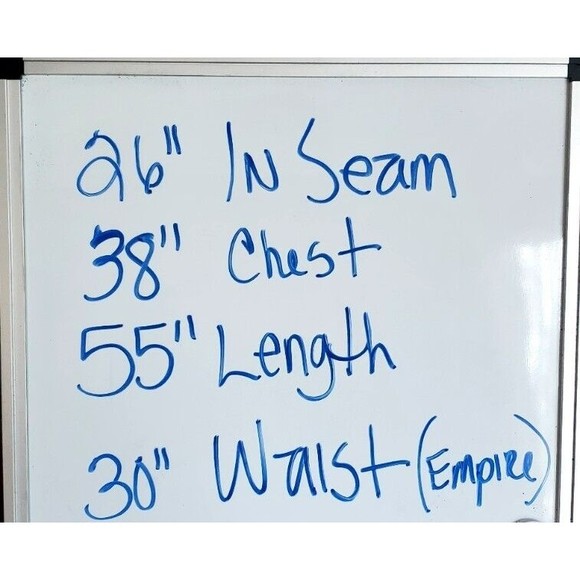 26" In Seam
38" Chest
55" Length
30" Waist (Empire)